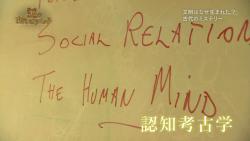 文明はなぜ生まれた?
古代のミステリー
SOCIAL RELATION
THE HUMAN MIND
認知考古学